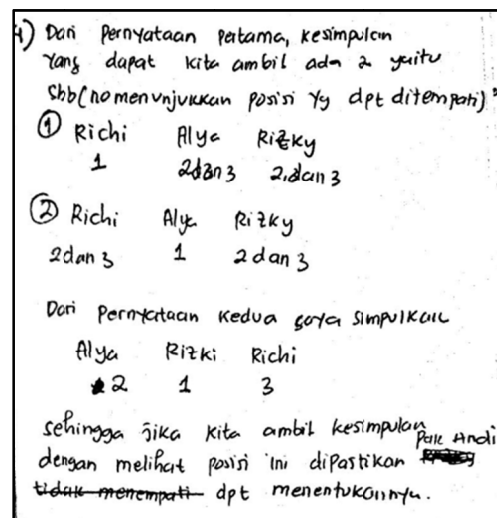 4) Dari Pernyataan Pertama, kesimpulan
Yang dapat kita ambil ada 2 yaitu
Sbb (no menunjukkan Posisi Yg dpt ditempati) :
① Richi Alya Rizky
1 2 dan 3 2 dan 3
② Richi Alya Rizky
2 dan 3 1 2 dan 3
Dari Pernyataan kedua saya simpulkan
Alya Rizki Richi
2 1 3
sehingga jika kita ambil kesimpulan
dengan melihat posisi ini dipastikan Pak Andi
tidak menempati dpt menentukannya.